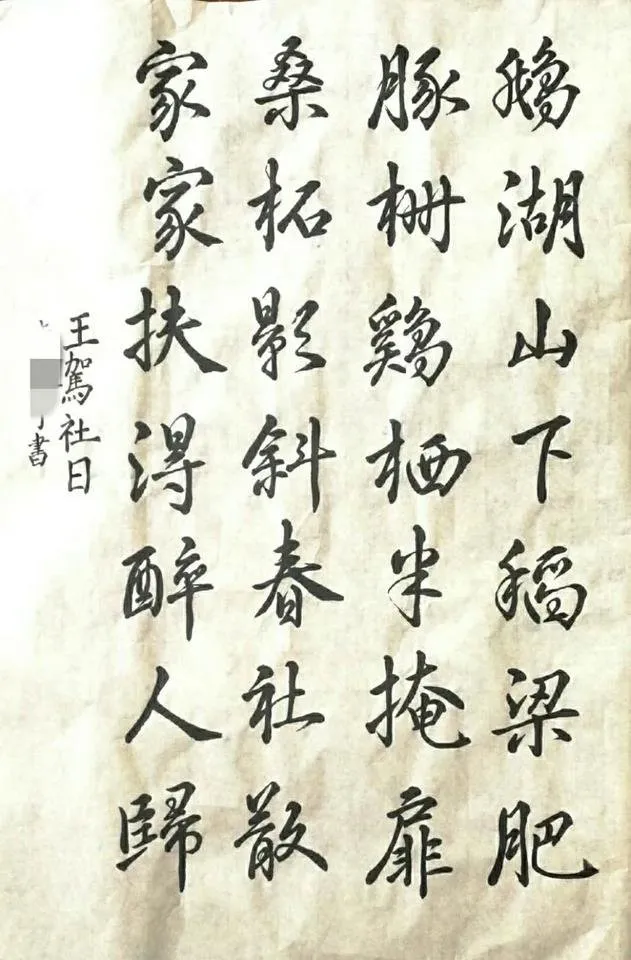 鵝湖山下稻梁肥
豚栅鷄栖半掩扉
桑柘影斜春社散
家家扶得醉人歸
王駕社日
書